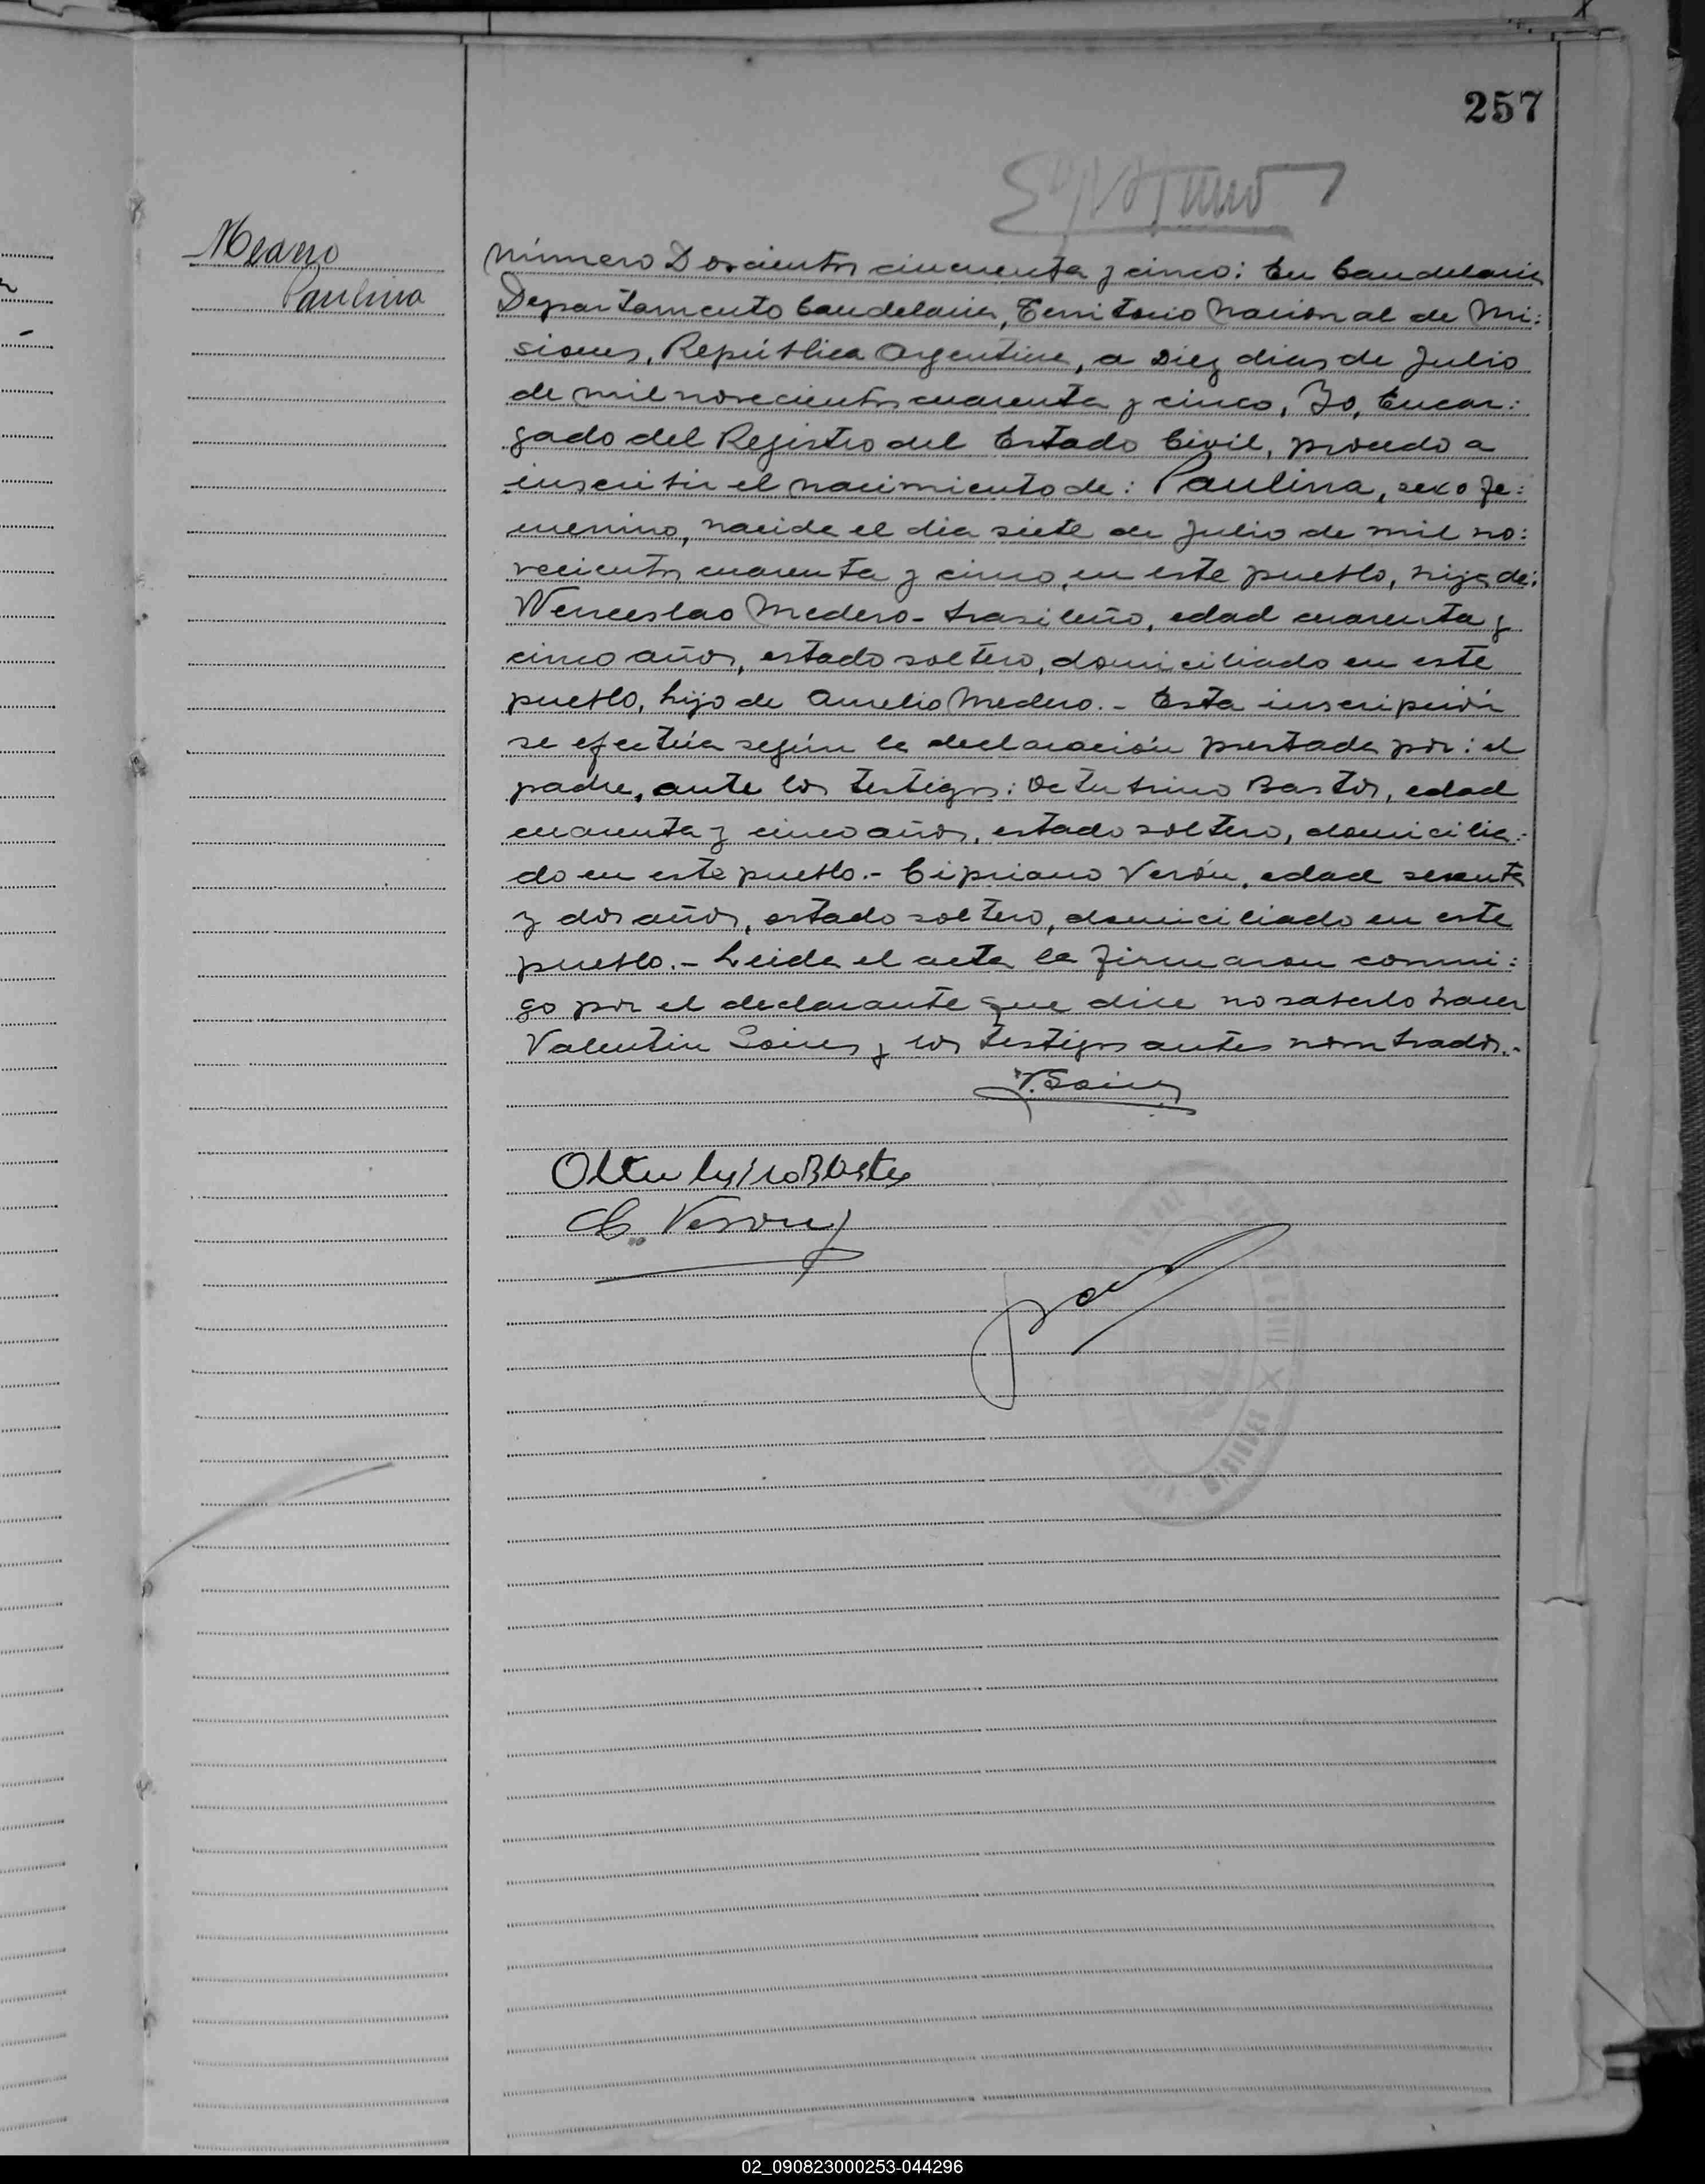 257
Medero
Paulina
Número Doscientos cincuenta y cinco: En Candelaria
Departamento Candelaria, Territorio Nacional de Mi:
siones, República Argentina, a Diez dias de Julio
de mil novecientos cuarenta y cinco, Yo, Encar:
gado del Registro del Estado Civil, procedo a
inscribir el nacimiento de: Paulina, sexo fe:
menino, nacida el dia siete de Julio de mil no:
vecientos cuarenta y cinco, en este pueblo, hija de:
Wenceslao Medero- brasileño, edad cuarenta y
cinco años, estado soltero, domiciliado en este
pueblo, hijo de Aurelio Medero.- Esta inscripción
se efectúa según la declaración prestada por: el
padre, ante los testigos: Octubrino Bastos, edad
cuarenta y cinco años, estado soltero, domicilia:
do en este pueblo.- Cipriano Verón, edad sesenta
y dos años, estado soltero, domiciliado en este
pueblo.- Leida el acta la firmaron conmi:
go por el declarante que dice no saberlo hacer
Valentin y los testigos antes nombrados.-
C. Veron
MISIONES
02_090823000253-044296